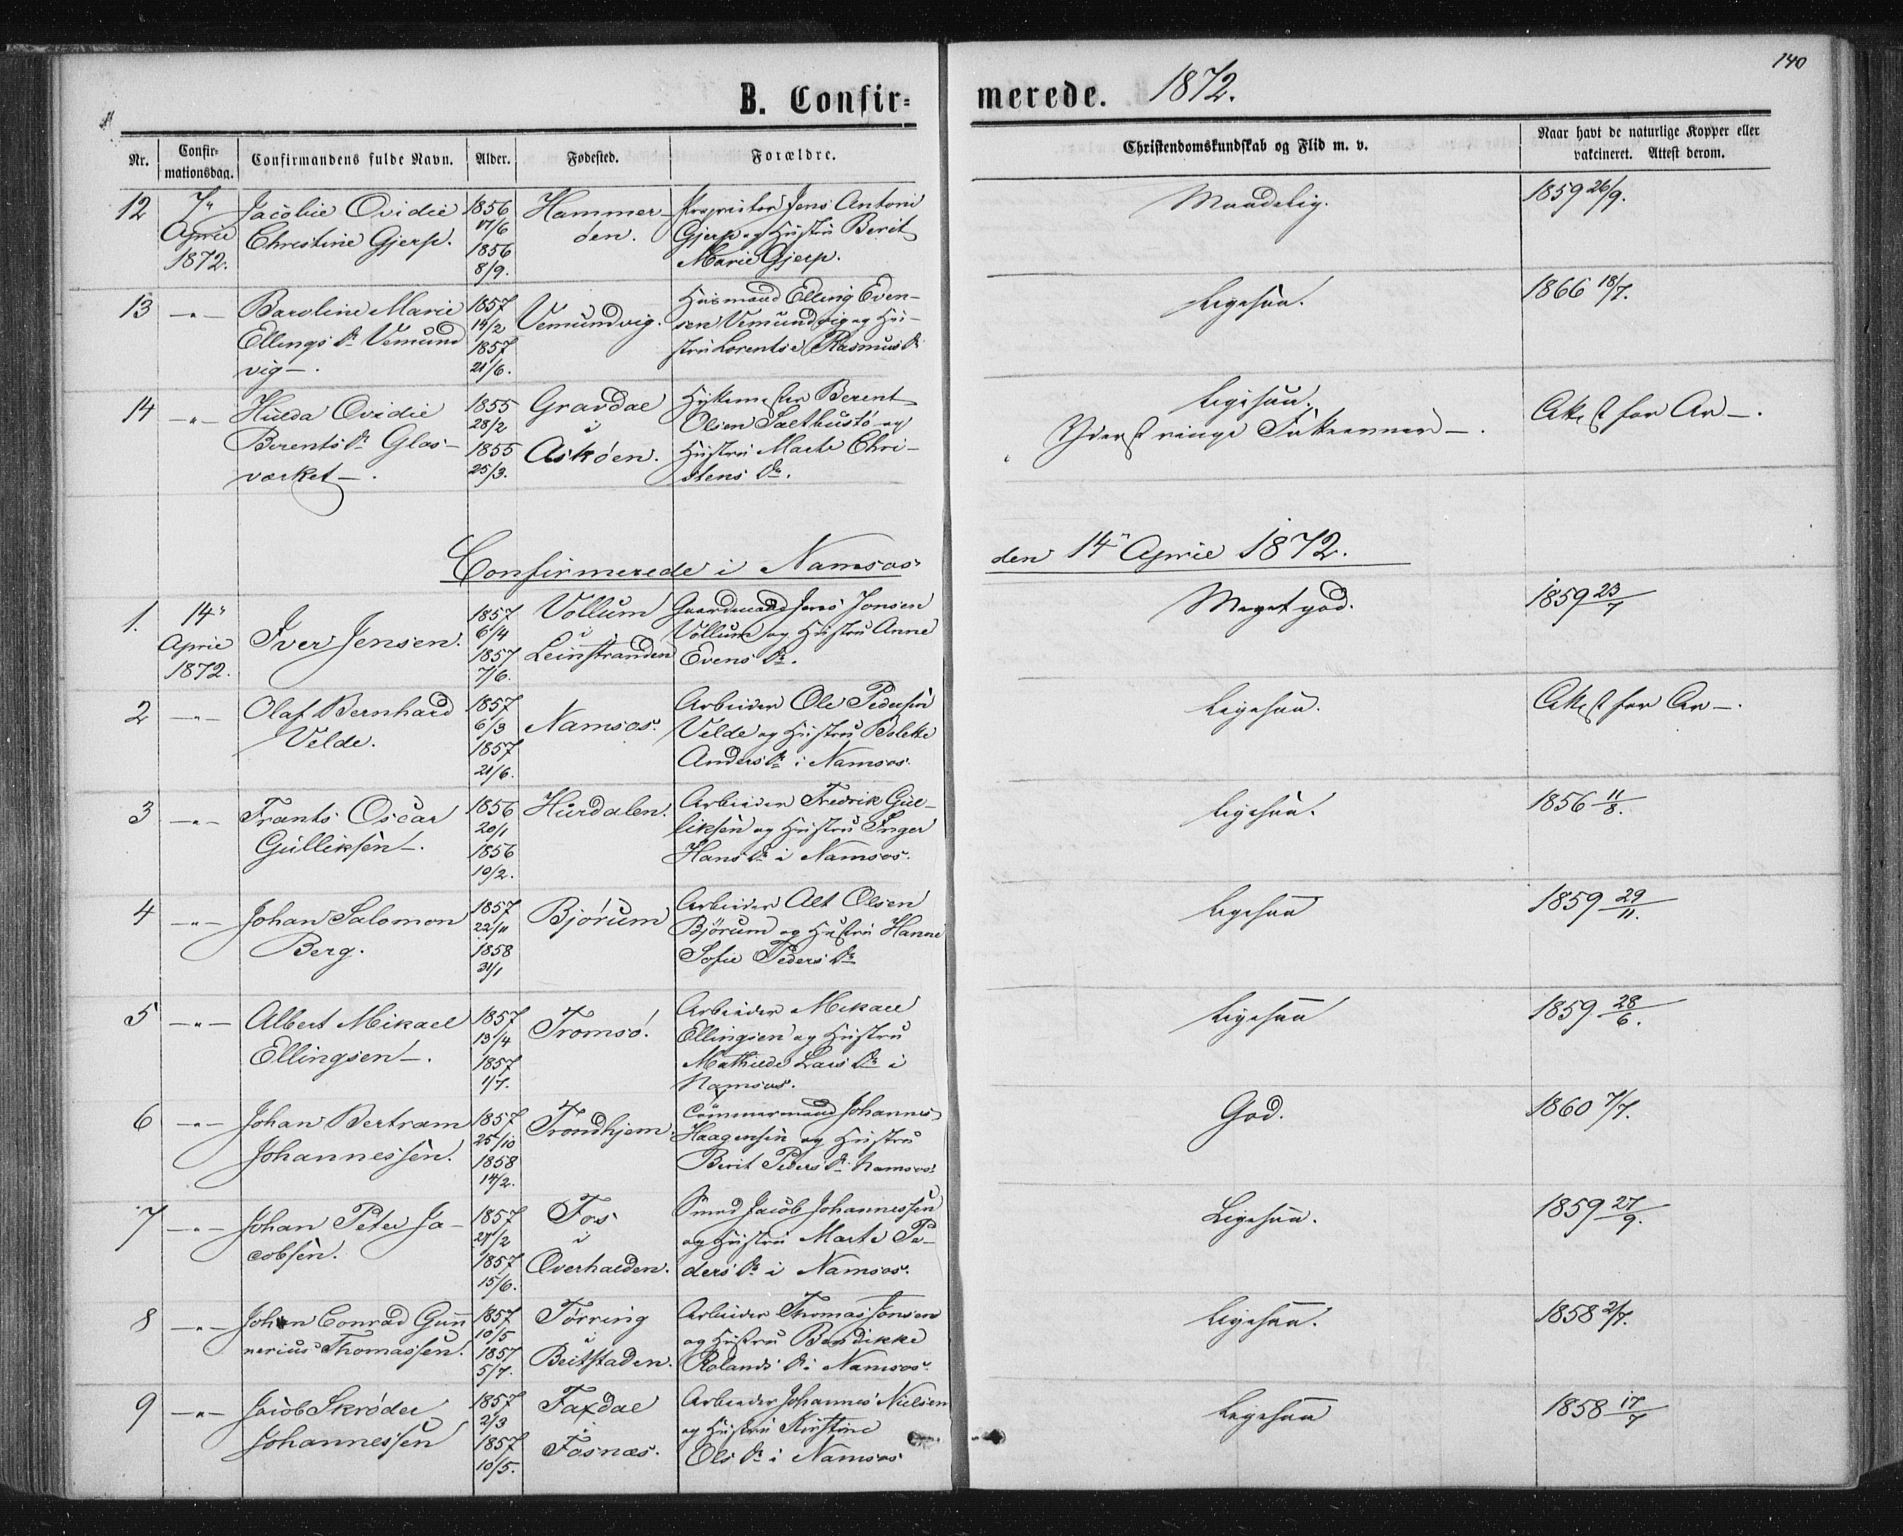 140
B. Confir-
merede. 1872.
Nr.
Confir-
mationsdag.
Confirmandens fulde Navn.
Alder.
Fødested.
Forældre.
Christendomskundskab og Flid m. v.
Naar havt de naturlige Kopper eller
vakcineret. Attest derom.
12
7"
April
1872.
Jacobie Ovidie
Christine Gjerp.
1856
17/6
1856
8/9.
Hammer
den.
Proprietær Jens Antoni
Gjerp og Hustru Berit
Marie Gjerp.
Maadelig.
1859 26/9.
13
-"-
Baroline Marie
Ellings Dr Vemund
vig-.
1857
14/2
1857
21/6.
Vemundvig.
Husmand Elling Even-
sen Vemundvig og Hu-
stru Lorentse Rasmus Dr
Ligesaa.
1866 18/7.
14
-"-
Hulda Ovidie
Berents Dr Glas-
værket-.
1855
28/2
1855
25/3.
Gravdal
i
Askøen.
Hyttemester Berent
Olsen Salthustø og
Hustru Marte Chri-
stens Dr.
Ligesaa.
Yderst ringe Fatteevner-.
Attest for Ar-.
Confirmerede i Namsos
den 14" April 1872.
1.
14"
April
1872.
Iver Jensen.
1857
6/4
1857
7/6.
Vollum
i
Leinstranden
Gaardmand Jens Jonsen
Vollum og Hustru Anne
Evens Dr.
Meget god.
1859 23/7
2
-"-
Olaf Bernhard
Velde.
1857
6/3
1857
21/6.
Namsos.
Arbeider Ole Pedersen
Velde og Hustru Bolette
Anders Dr i Namsos.
Ligesaa.
Attest for Ar-.
3
-"-
Frants Oscar
Gulliksen-.
1856
20/1
1856
10/2.
Hurdalen.
Arbeider Fredrik Gul-
liksen og Hustru Inger
Hans Dr i Namsos.
Ligesaa.
1856 11/8.
4
-"-
Johan Salomon
Berg.
1857
22/11
1858
31/1
Bjørum
Arbeider Alt Olsen
Bjørum og Hustru Hanne
Sofie Peders Dr
Ligesaa
1859 29/11.
5
-"-
Albert Mikael
Ellingsen-.
1857
13/4
1857
1/7.
Tromsø.
Arbeider Mikael
Ellingsen og Hustru
Mathilde Lars Dr i
Namsos.
Ligesaa
1859 28/6.
6
-"-
Johan Bertram
Johannessen.
1857
25/10
1858
14/2.
Trondhjem.
Tømmermand Johannes
Haagensen og Hustru
Berit Peders Dr. Namsos.
God.
1860 7/7.
7
-"-
Johan Peter Ja-
cobsen.
1857
27/2
1857
15/6.
Fos
i
Overhalden.
Smed Jacob Johannessen
og Hustru Marte Pe-
ders Dr i Namsos.
Ligesaa.
1859 27/9.
8
-"-
Johan Conrad Gun
nerius Thomassen.
1857
10/5
1857
5/7.
Tørring
i
Beitstaden.
Arbeider Thomas Jonsen
og Hustru Bendikke
Rolands Dr i Namsos.
Ligesaa.
1858 2/7.
9
-"-
Jacob Skrøder
Johannessen
1857
2/3
1857
10/5.
Faxdal
i
Fosnæs.
Arbeider Johannes Nielsen
og Hustru Kirstine
Ols Dr i Namsos
Ligesaa
1858 17/7